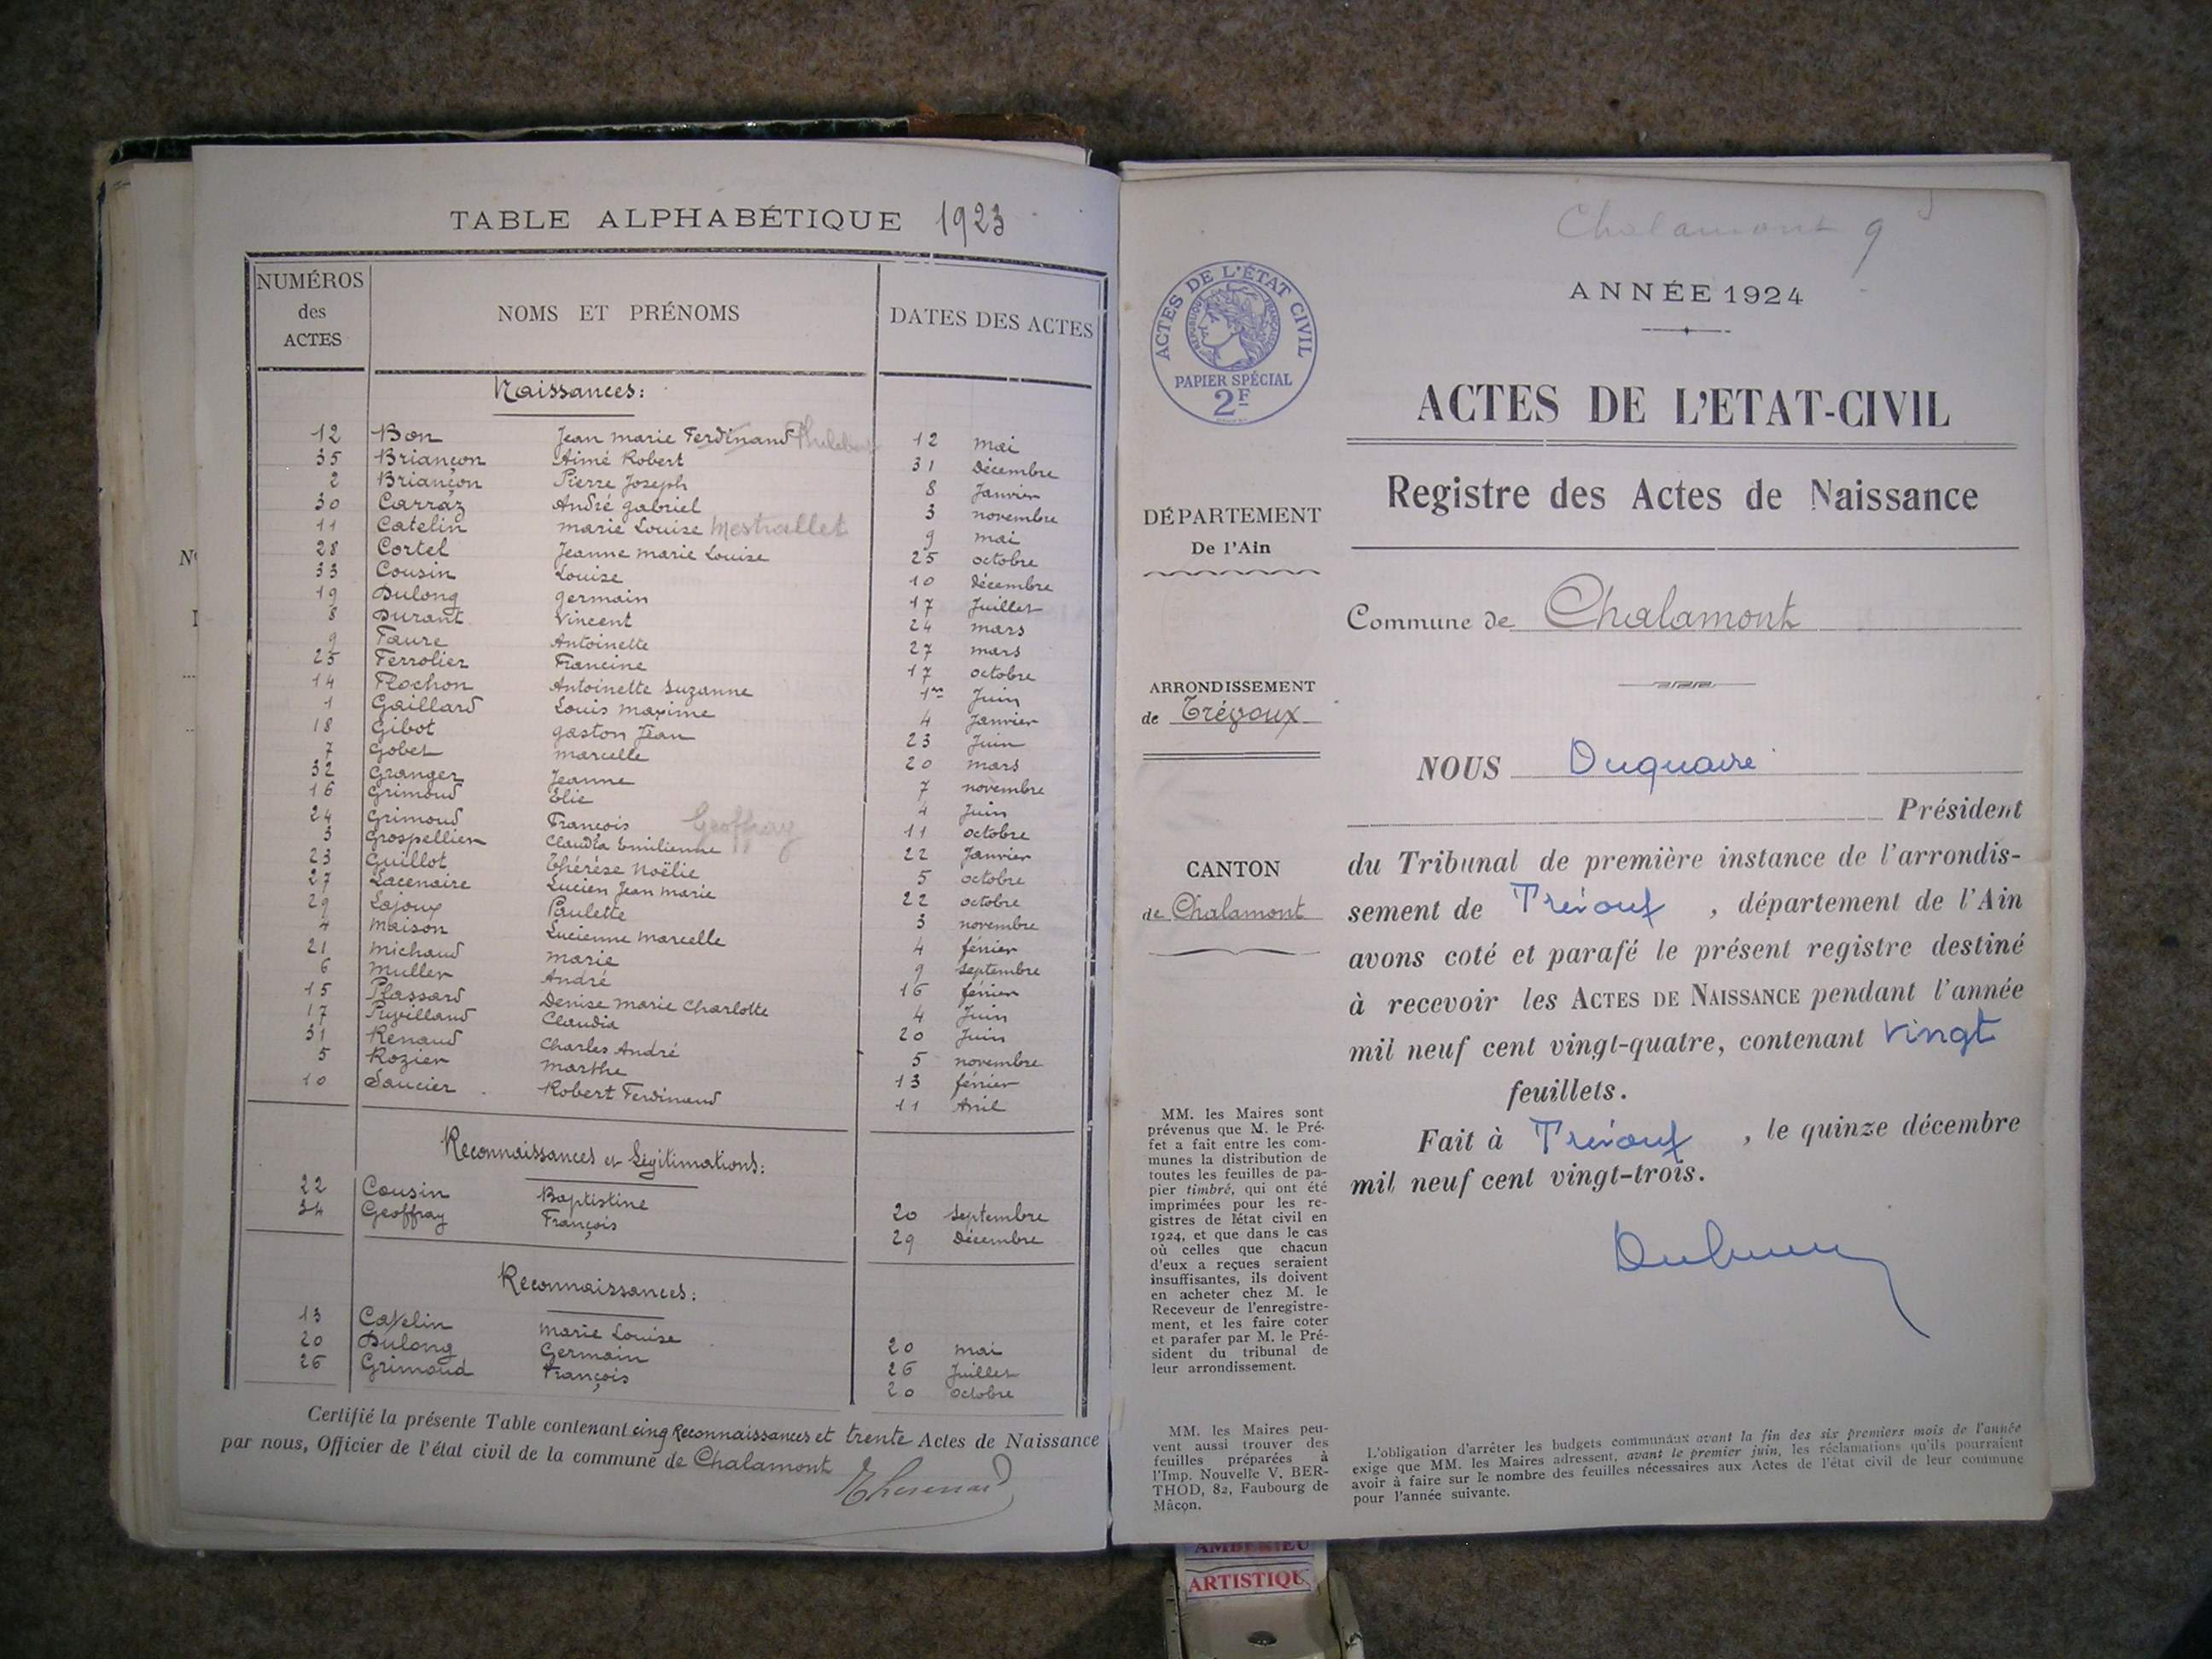 TABLE ALPHABÉTIQUE 1923
NUMÉROS des ACTES NOMS ET PRÉNOMS DATES DES ACTES
Naissances:
12 Bon Jean marie Ferdinand 12 mai
35 Briançon Aimé Robert 31 Décembre
2 Briançon Pierre Joseph 8 Janvier
30 Carraz André gabriel 3 novembre
11 Catelin marie Louise Mestrallet 9 mai
28 Cortel Jeanne marie Louise 25 octobre
33 Cousin Louise 10 décembre
19 Dulong germain 17 Juillet
8 Durant Vincent 24 mars
9 Faure Antoinette 27 mars
25 Ferrolier Francine 17 octobre
14 Flochon Antoinette Suzanne 1er Juin
1 Gaillard Louis maxime 4 Janvier
18 Gibot gaston Jean 23 Juin
7 Gobet marcelle 20 mars
32 Granger Jeanne 7 novembre
16 Grimoud Elie 4 Juin
24 Grimoud François Geoffray 11 octobre
3 Grospellier Claudia Emilienne 22 Janvier
23 Guillot Thérèse Noëlie 5 octobre
27 Lacenaire Lucien Jean marie 22 octobre
29 Lajoux Paulette 3 novembre
4 Maison Lucienne marcelle 4 février
21 Michaud marie 9 septembre
6 Muller André 16 février
15 Plassard Denise marie Charlotte 4 Juin
17 Puvilland Claudia 20 Juin
31 Renaud Charles André 5 novembre
5 Rozier marthe 13 février
10 Saucier Robert Ferdinand 11 Avril
Reconnaissances et Légitimations:
22 Cousin Baptistine 20 septembre
34 Geoffray François 29 Décembre
Reconnaissances:
13 Catelin marie Louise 20 mai
20 Dulong Germain 26 Juillet
26 Grimoud François 20 octobre
Certifié la présente Table contenant cinq Reconnaissances et trente Actes de Naissance
par nous, Officier de l'état civil de la commune de Chalamont
Chalamont 9
ACTES DE L'ÉTAT CIVIL
RÉPUBLIQUE FRANÇAISE
PAPIER SPÉCIAL
2F
ANNÉE 1924
ACTES DE L'ETAT-CIVIL
Registre des Actes de Naissance
DÉPARTEMENT
De l'Ain
Commune de Chalamont
ARRONDISSEMENT
de Trévoux
CANTON
de Chalamont
NOUS Duquaire
Président
du Tribunal de première instance de l'arrondis-
sement de Trévoux, département de l'Ain
avons coté et parafé le présent registre destiné
à recevoir les ACTES DE NAISSANCE pendant l'année
mil neuf cent vingt-quatre, contenant vingt
feuillets.
Fait à Trévoux, le quinze décembre
mil neuf cent vingt-trois.
MM. les Maires sont
prévenus que M. le Pré-
fet a fait entre les com-
munes la distribution de
toutes les feuilles de pa-
pier timbré, qui ont été
imprimées pour les re-
gistres de létat civil en
1924, et que dans le cas
où celles que chacun
d'eux a reçues seraient
insuffisantes, ils doivent
en acheter chez M. le
Receveur de l'enregistre-
ment, et les faire coter
et parafer par M. le Pré-
sident du tribunal de
leur arrondissement.
MM. les Maires peu-
vent aussi trouver des
feuilles préparées à
l'Imp. Nouvelle V. BER-
THOD, 82, Faubourg de
Mâcon.
L'obligation d'arrêter les budgets communaux avant la fin des six premiers mois de l'année
exige que MM. les Maires adressent, avant le premier juin, les réclamations qu'ils pourraient
avoir à faire sur le nombre des feuilles nécessaires aux Actes de l'état civil de leur commune
pour l'année suivante.
AMBERIEU
ARTISTIQU